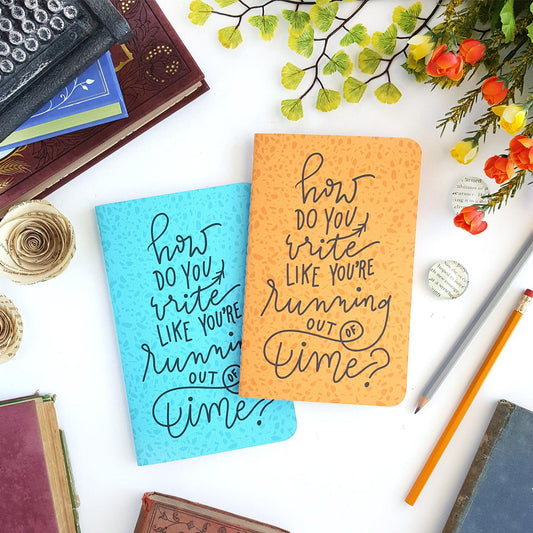 how
DO YOU
write
LIKE YOU'RE
running
OUT OF
time?
how
DO YOU
write
LIKE YOU'RE
running
OUT OF
time?